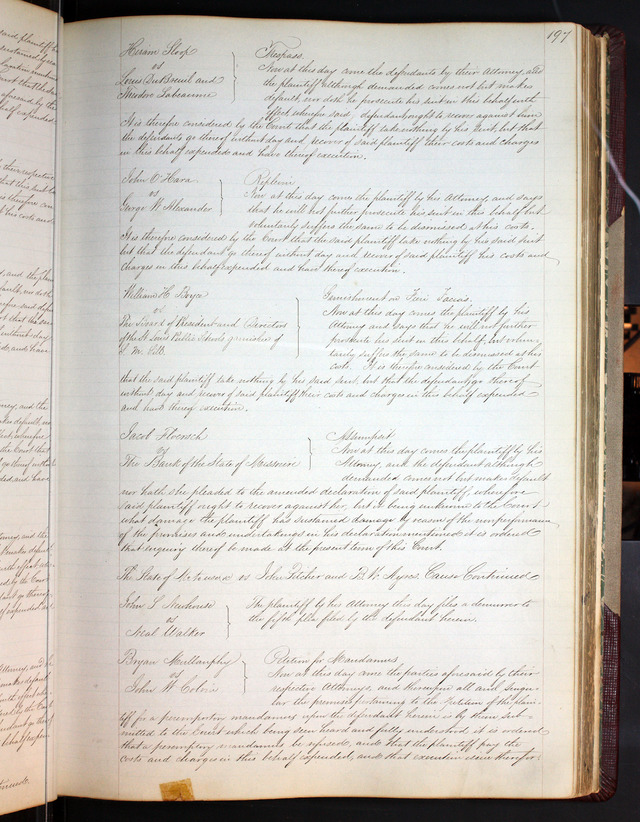 197
Hiram Sloop
vs
Louis DuBreuil and
Theodore Labeaume
Trespass.
Now at this day come the defendants by their Attorney, and
the plaintiff although demanded comes not but makes
default, nor doth he prosecute his suit in this behalf with
effect wherefore said defendants ought to recover against him
It is therefore considered by the Court that the plaintiff take nothing by his suit but that
the defendants go thereof without day and recover of said plaintiff their costs and charges
in this behalf expended and have thereof execution.
John O'Hara
vs
George W. Alexander
Replevin
Now at this day comes the plaintiff by his Attorney and says
that he will not further prosecute his suit in this behalf but
voluntarily suffers the same to be dismissed at his costs.
It is therefore considered by the Court that the said plaintiff take nothing by his said suit
but that the defendant go thereof without day and recover of said plaintiff his costs and
charges in this behalf expended and have thereof execution.
William H. Boyce
vs
The Board of President and Directors
of the St Louis Public Schools garnishees of
M.
Garnishment on Fieri Facias.
Now at this day comes the plaintiff by his
Attorney and says that he will not further
prosecute his suit in this behalf, but volun-
tarily suffers the same to be dismissed at his
costs. It is therefore considered by the Court
that the said plaintiff take nothing by his said suit, but that the defendants go thereof
without day and recover of said plaintiff their costs and charges in this behalf expended
and have thereof execution.
Jacob
vs
The Bank of the State of Missouri
Assumpsit
Now at this day comes the plaintiff by his
Attorney, and the defendant although
demanded comes not but makes default
nor hath she pleaded to the amended declaration of said plaintiff, wherefore
said plaintiff ought to recover against her, but it being unknown to the Court
what damage the plaintiff has sustained damage by reason of the nonperformance
of the promises and undertakings in his declaration mentioned it is ordered
that inquiry thereof be made at the present term of this Court.
The State of vs John Pitcher and B. W. Ayres Cause Continued
John S. Newhouse
vs
Neal Walker
The plaintiff by his Attorney this day files a demurrer to
the fifth plea filed by the defendant herein.
Bryan Mullanphy
vs
John W. Colvin
Petition for Mandamus
Now at this day come the parties aforesaid by their
respective Attorneys, and thereupon all and singu-
lar the premises touching to the Petition of the plain-
tiff for a peremptory mandamus upon the defendant herein is by them sub-
mitted to the Court which being seen heard and fully understood it is ordered
that a peremptory mandamus be refused, and that the plaintiff pay the
costs and charges in this behalf expended, and that execution issue therefor.